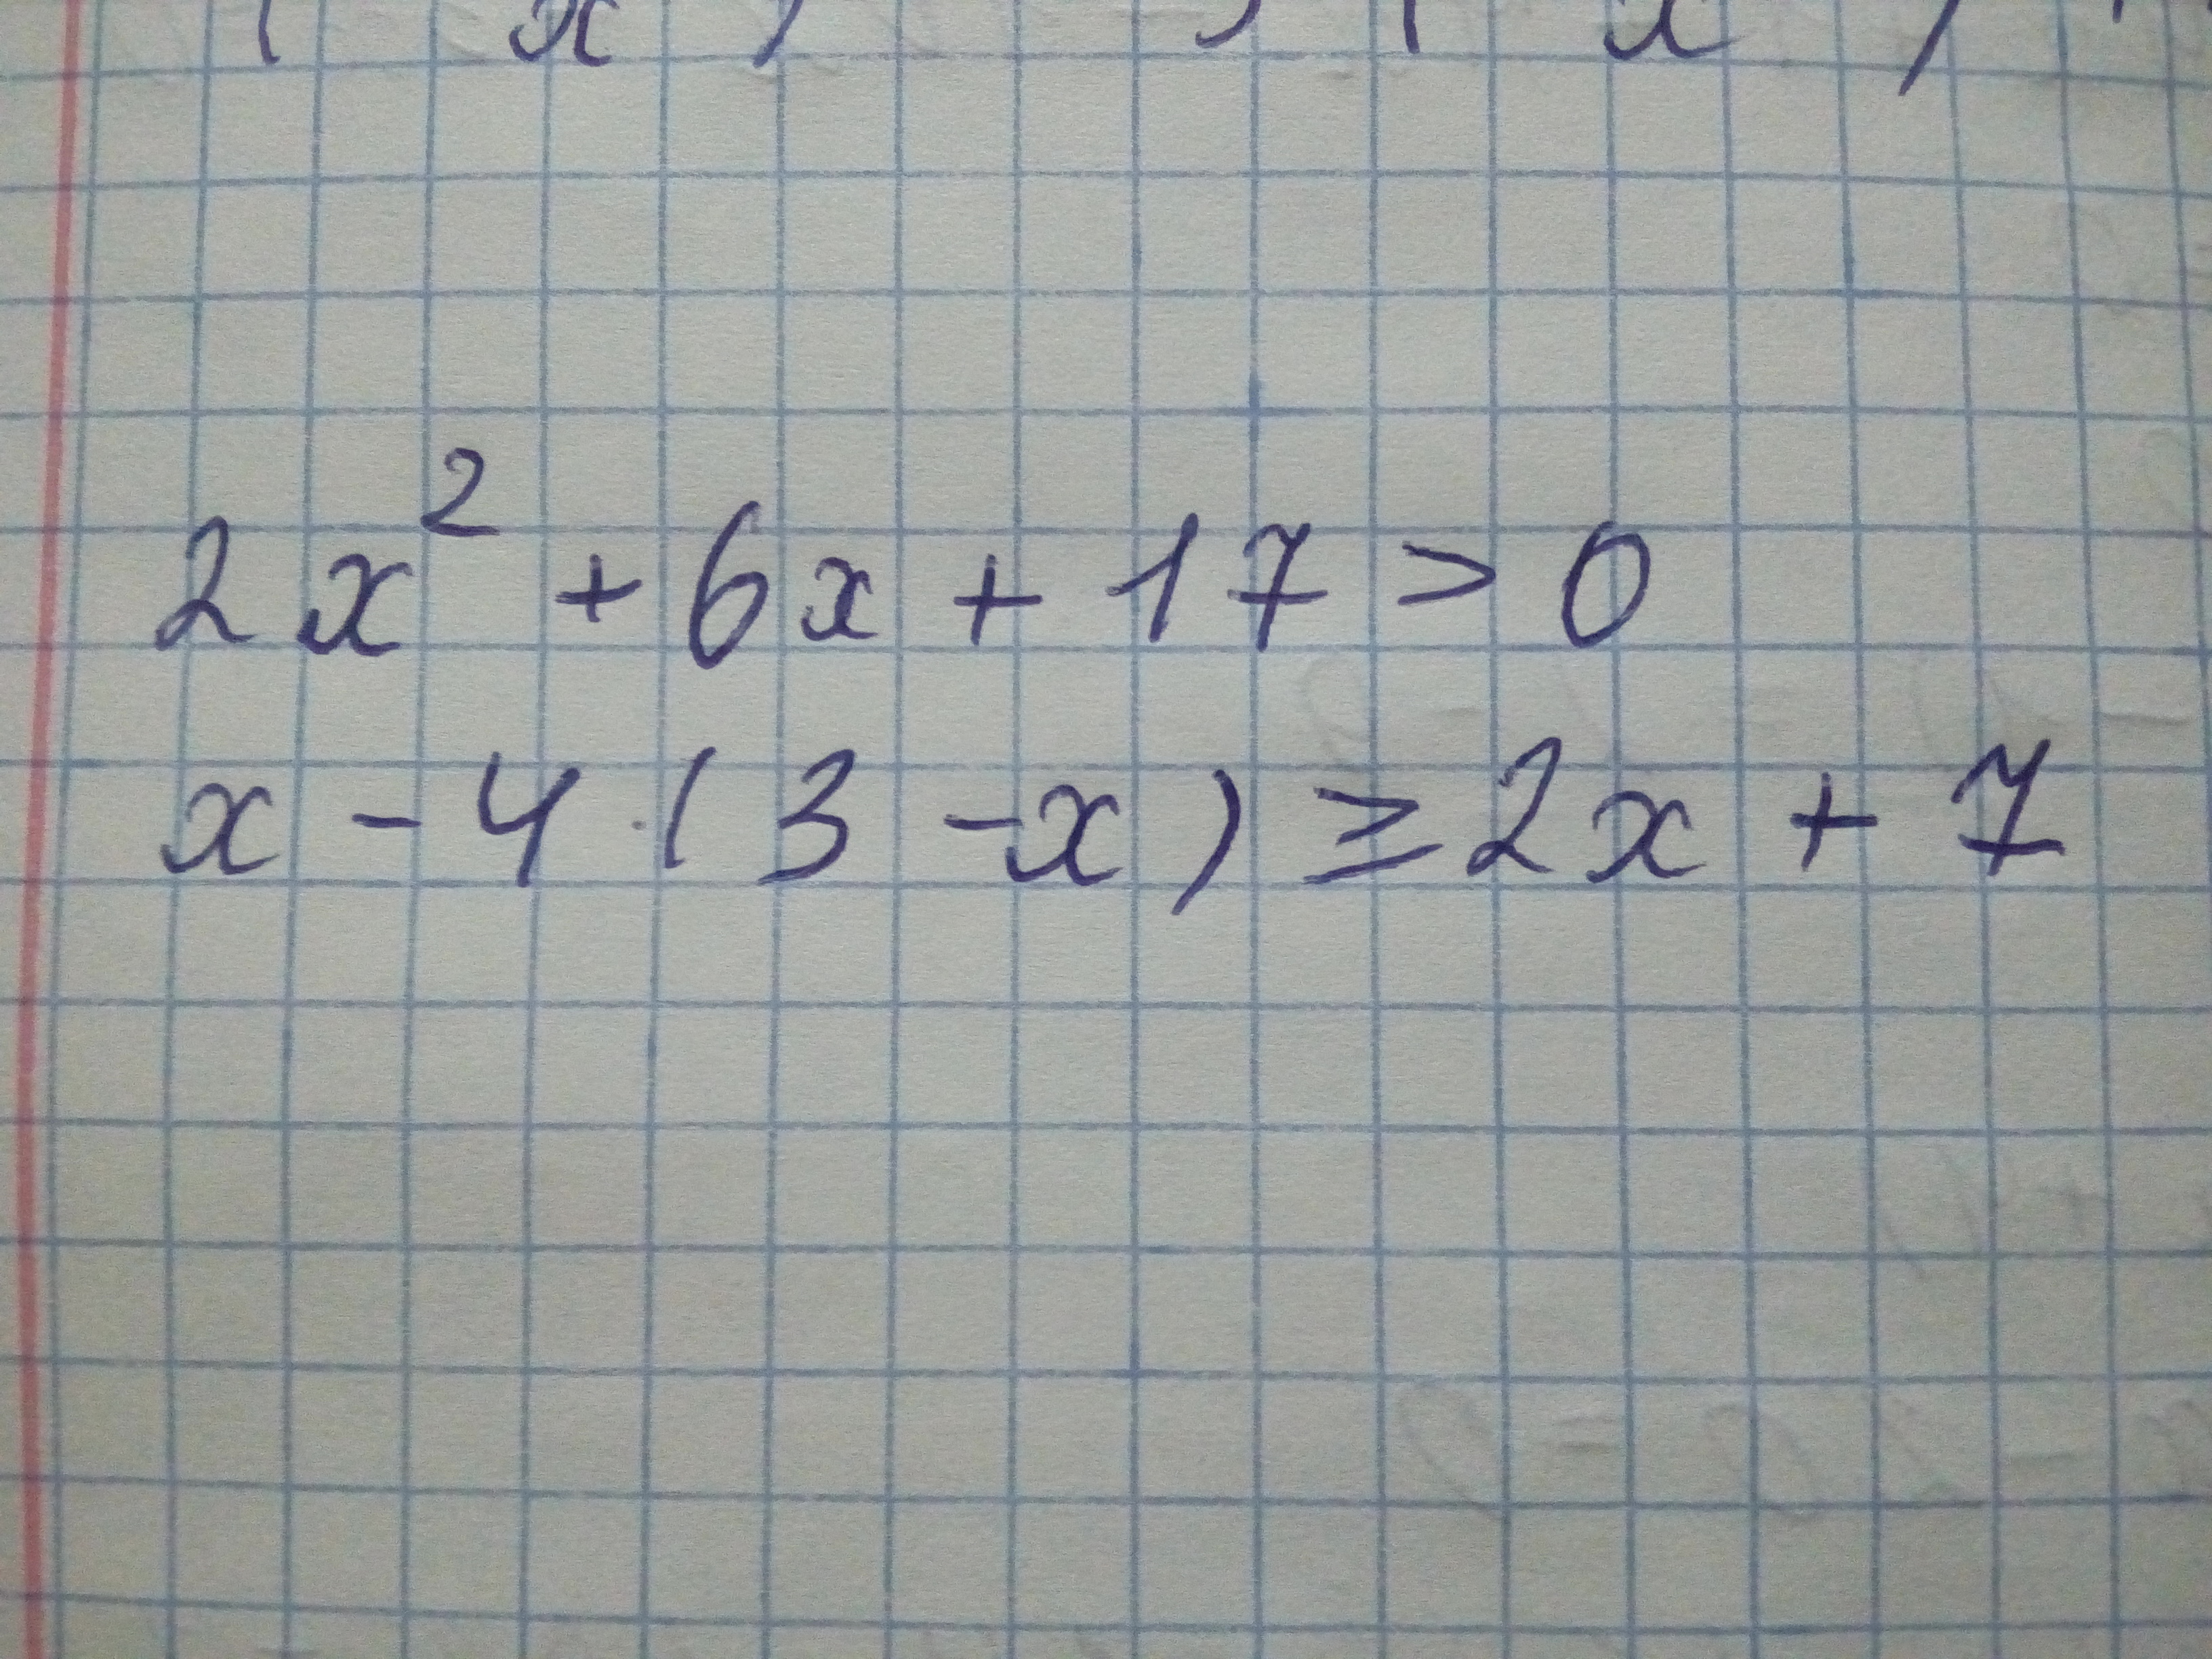 ( x ) ( x )
2x² + 6x + 17 > 0
x - 4 · (3 - x) ≥ 2x + 7